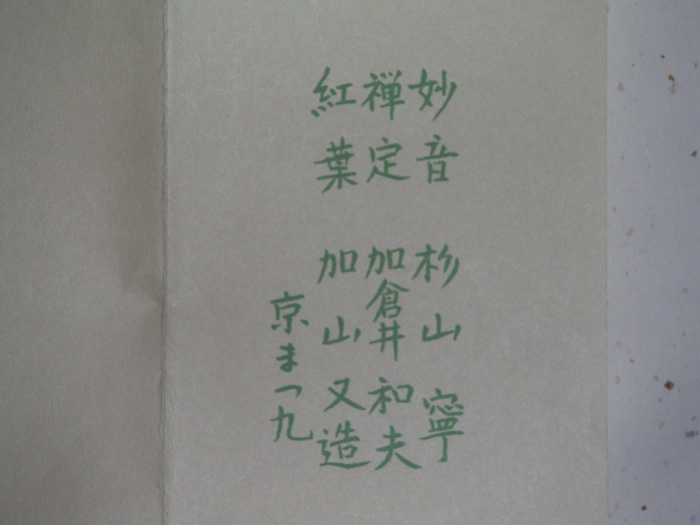 妙音 杉山 寧
禅定 加倉井 和夫
紅葉 加山 又造
京まつ九